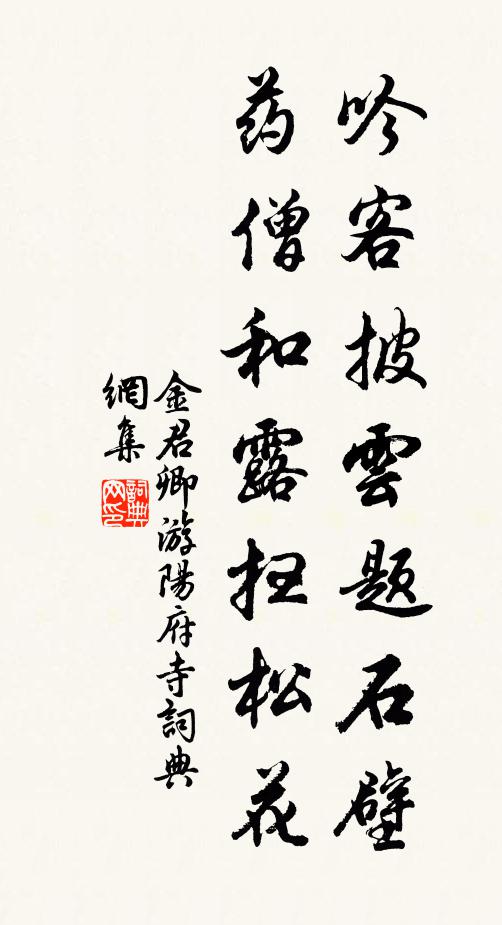 吟客披雲題石壁
药僧和露扫松花
金君卿游陽府寺詞典
網集
詞典
网印